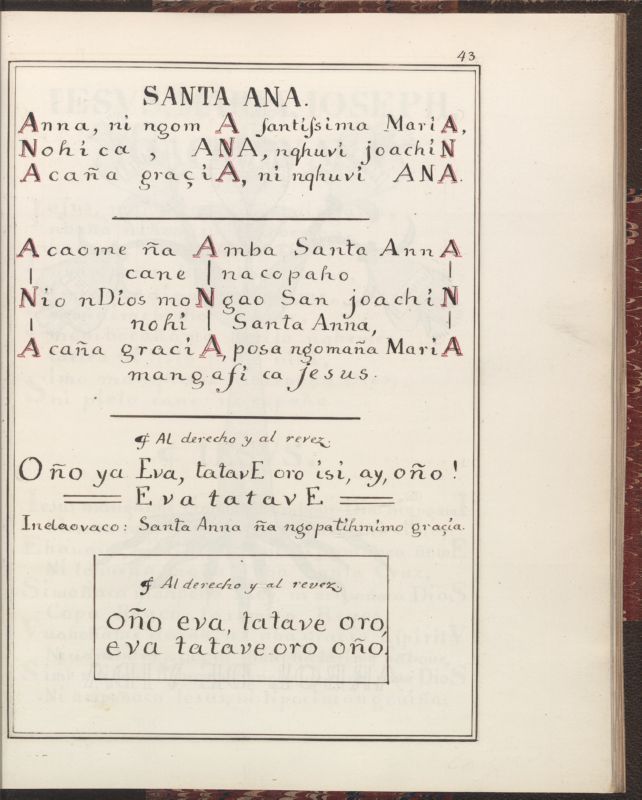 43
SANTA ANA.
Anna, ni ngom A santissima MariA,
Nohica, ANA, nqhuvi joachiN
Acaña graçiA, ni nqhuvi ANA.
Acaome ña Amba Santa AnnA
cane nacopaho
Nio nDios moNgao San joachiN
nohi Santa Anna,
Acaña graciA, posa ngomaña MariA
mangasi ca Jesus.
Al derecho y al revez.
Oño ya Eva, tatavE oro isi, ay, oño!
EvatatavE
Inelaovaco: Santa Anna ña ngopatihmimo graçia.
Al derecho y al revez,
oño eva, tatave oro,
eva tatave oro oño.